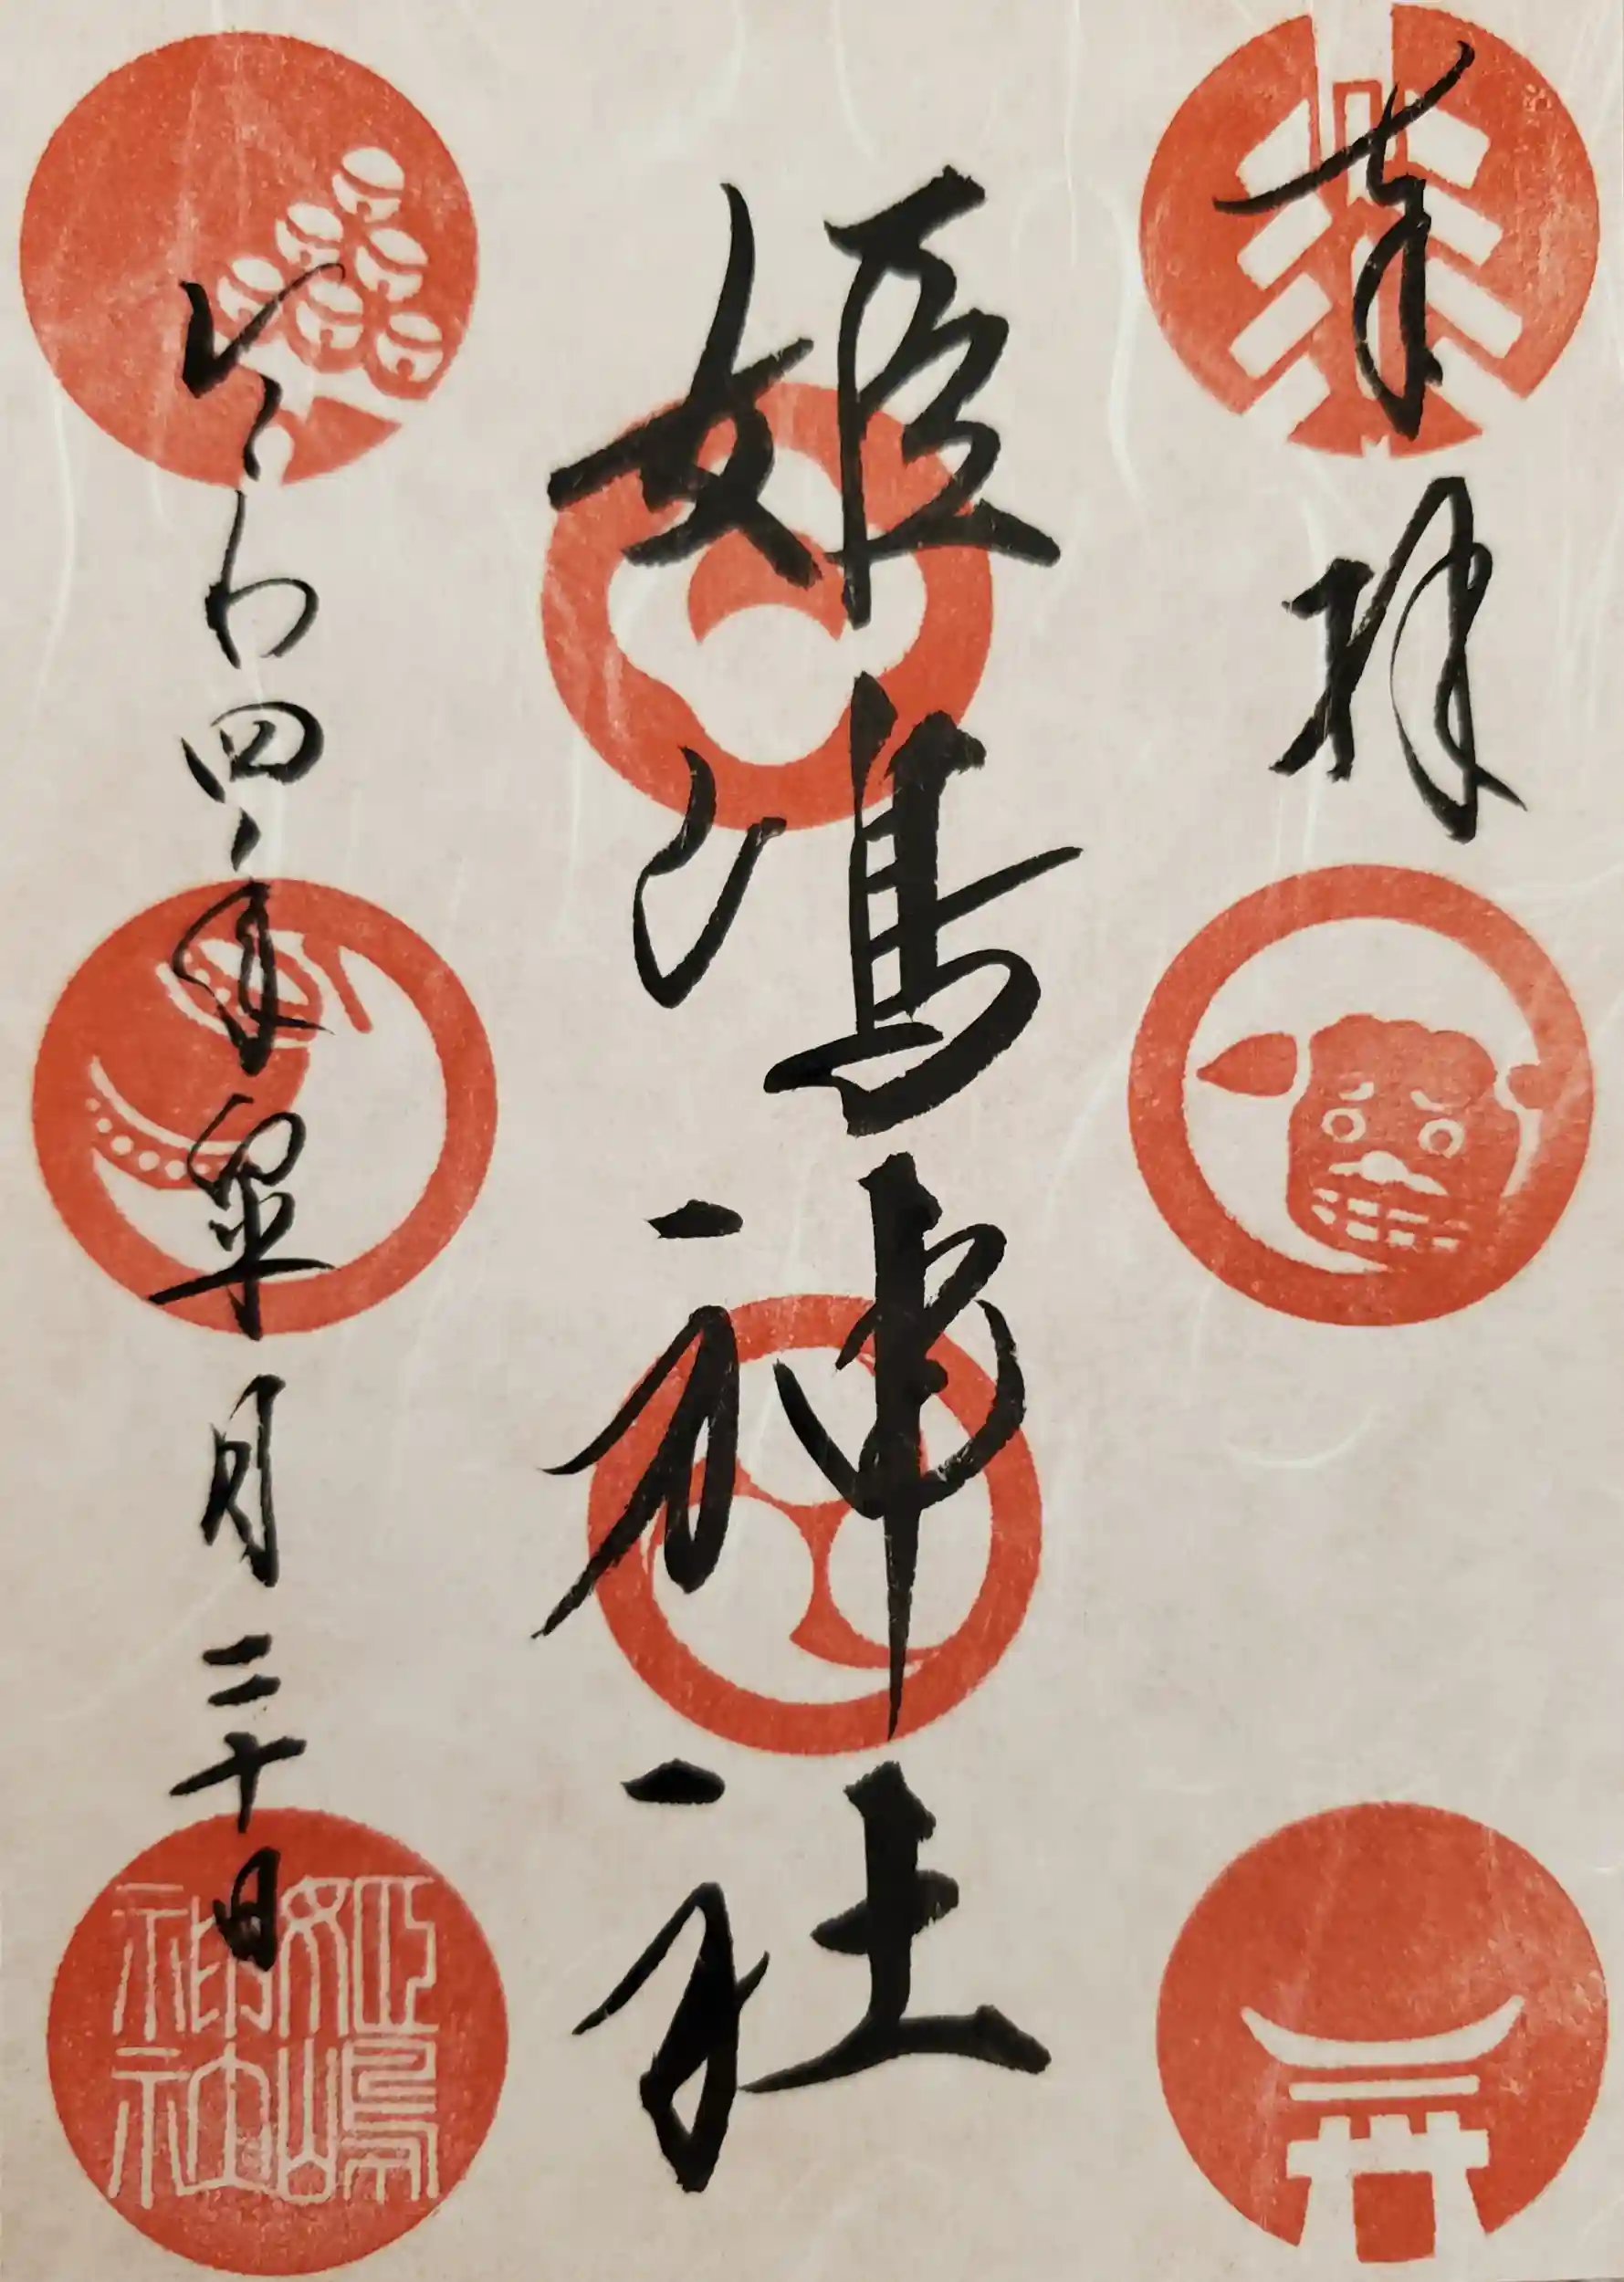 奉拝
姫嶋神社
令和四年皐月二十日
姫嶋神社